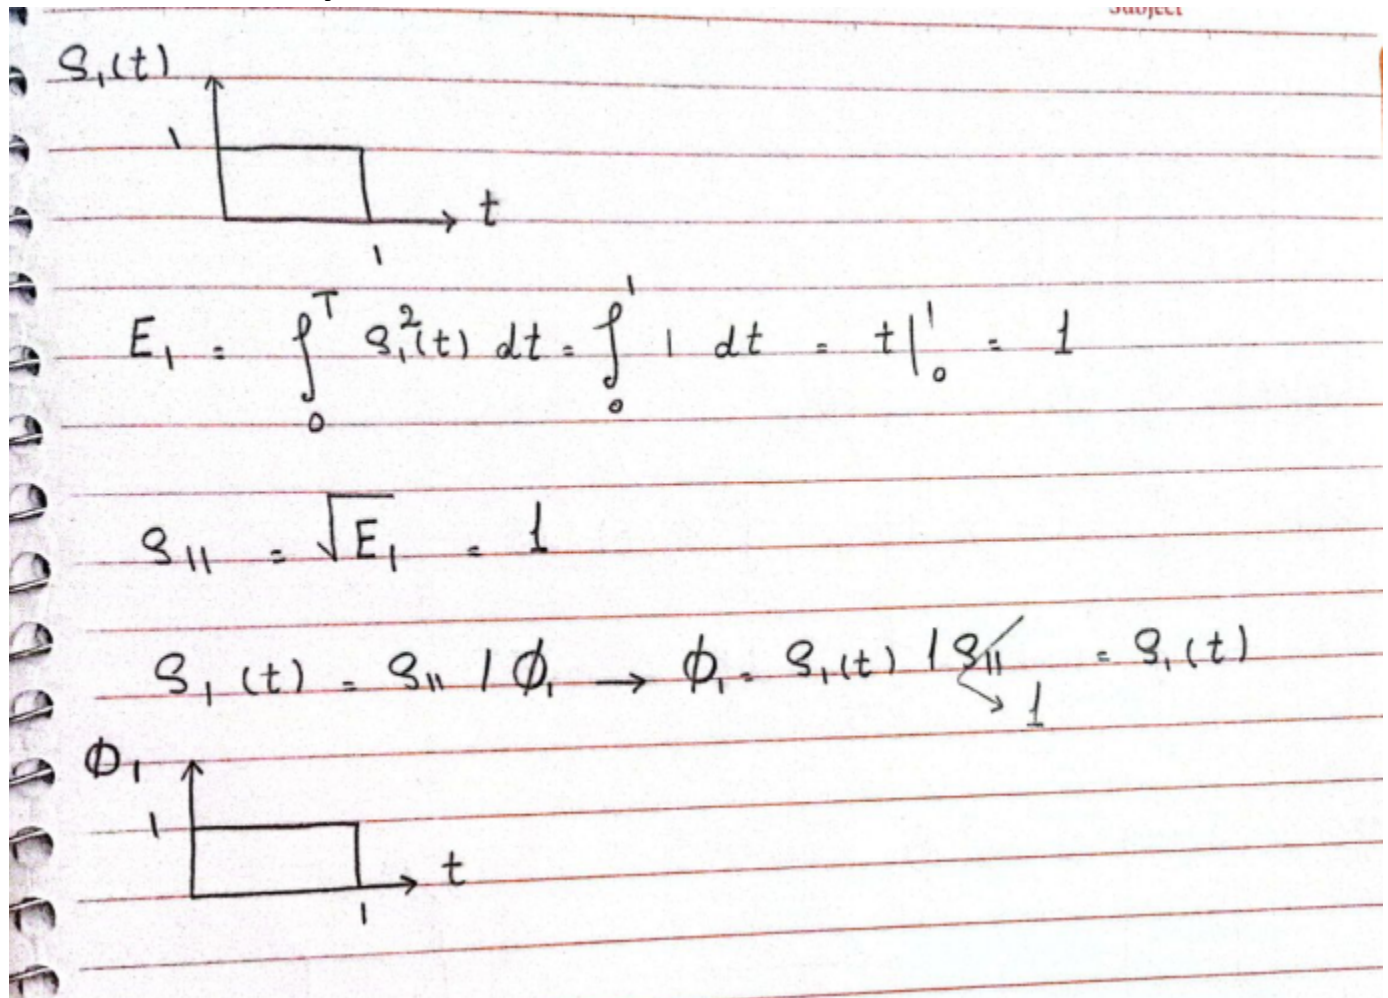 Subject
S₁(t)
1
t
1
E₁ = ∫₀ᵀ s₁²(t) dt = ∫₀¹ 1 dt = t|₀¹ = 1
s₁₁ = √E₁ = 1
S₁(t) = s₁₁ / ϕ₁ → ϕ₁ = s₁(t) / s₁₁ = s₁(t)
1
ϕ₁
1
t
1